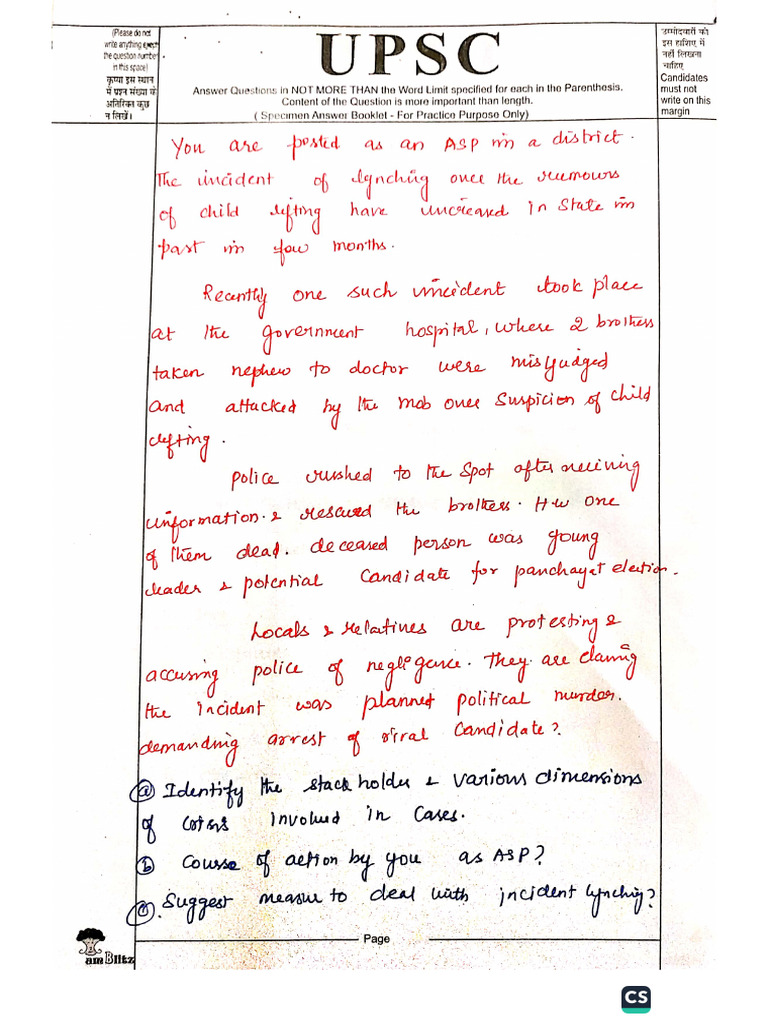 (Please do not
write anything except
the question number
in this space)
कृपया इस स्थान
में प्रश्न संख्या के
अतिरिक्त कुछ
न लिखें।
UPSC
Answer Questions in NOT MORE THAN the Word Limit specified for each in the Parenthesis.
Content of the Question is more important than length.
( Specimen Answer Booklet - For Practice Purpose Only)
उम्मीदवारों को
इस हाशिए में
नहीं लिखना
चाहिए
Candidates
must not
write on this
margin
You are posted as an ASP in a district.
The incident of lynching over the rumours
of child lifting have increased in State in
past in few months.
Recently one such incident took place
at the government hospital, where 2 brothers
taken nephew to doctor were misjudged
and attacked by the mob over suspicion of child
lifting.
police rushed to the spot after receiving
information & rescued the brothers. H-w one
of them dead. deceased person was young
leader & potential candidate for panchayat election.
Locals & relatives are protesting &
accusing police of negligence. They are claming
the incident was planned political murder.
demanding arrest of rival candidate?
(a) Identify the stack holder & various dimensions
of involved in cases.
(b) Course of action by you as ASP?
(c) Suggest measure to deal with incident lynching?
Page
am Blitz
CS